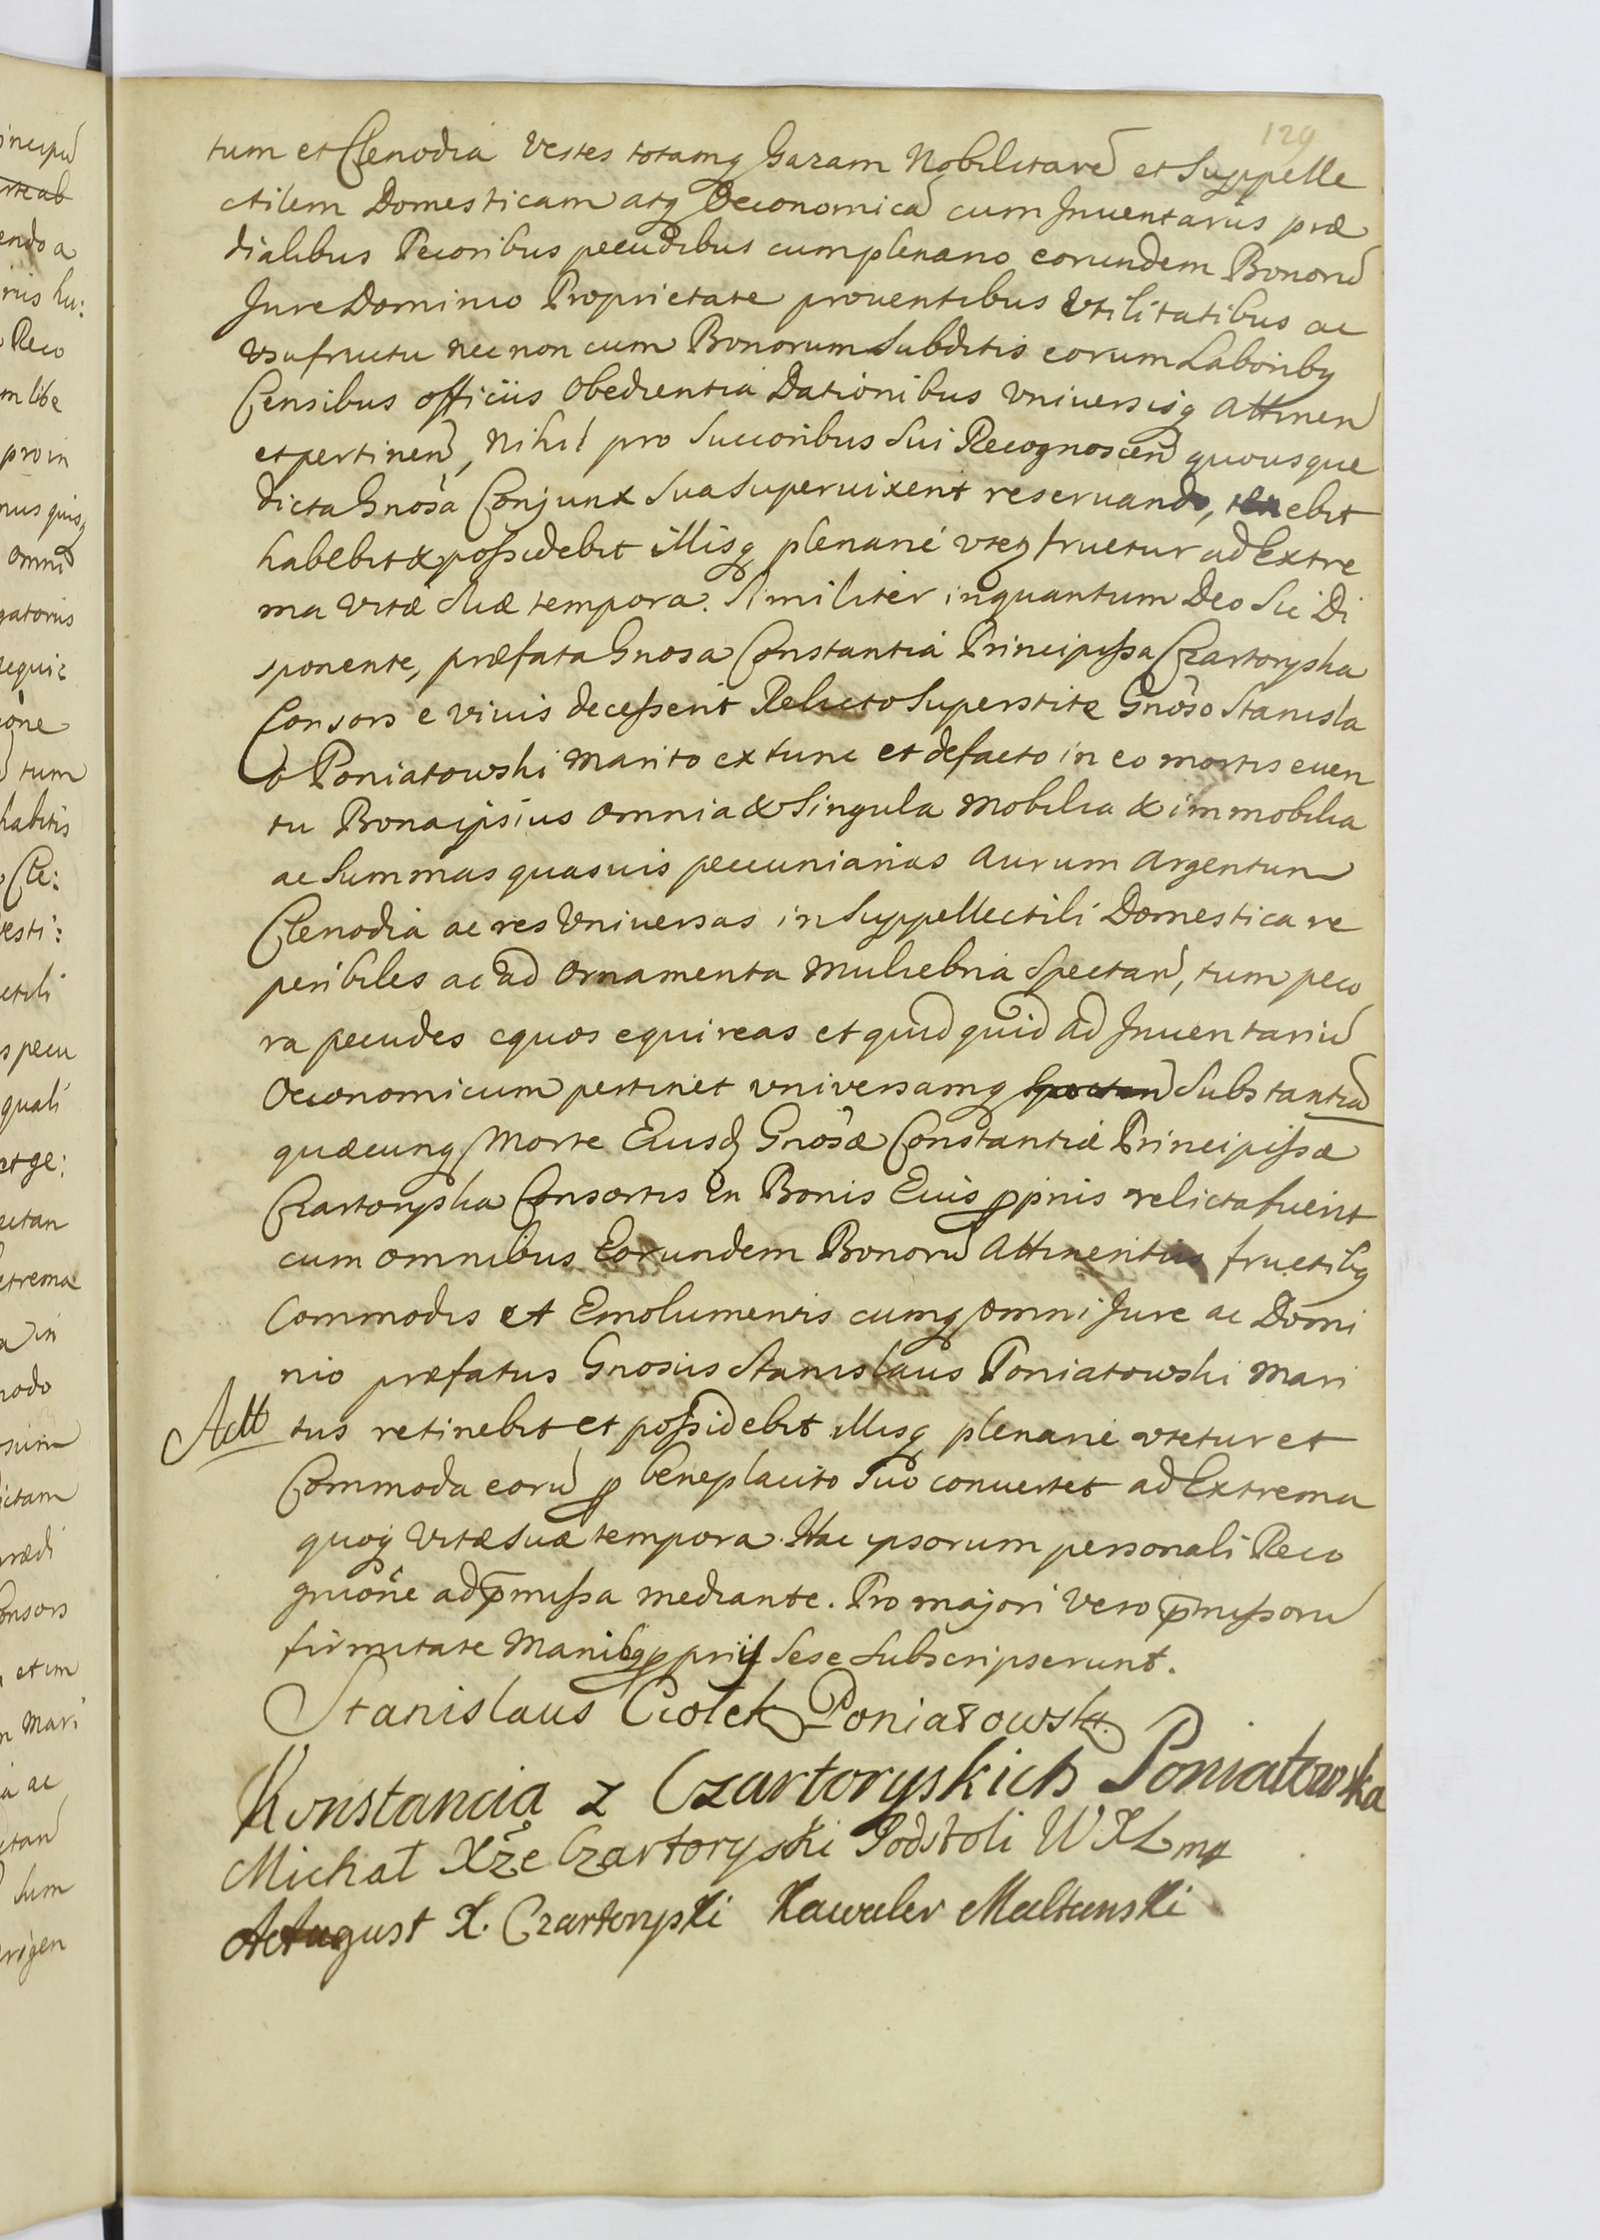 129
tum et Clenodia Vestes totamq Gazam Nobilitarē et Suppelle
ctilem Domesticam atq Oeconomicā cum Inuentariis præ
dialibus Pecoribus pecudibus cum plenario eorundem Bonorū
Jure Dominio Proprietate prouentibus Vtilitatibus ac
Vsufructu nec non cum Bonorum Subditis eorum Laboribq
Censibus officiis Obedientia Dationibus Vniuersisq Attinen
et pertinen, Nihil pro Succoribus Sui Recognoscen quousque
dicta Gnosa Conjunx Sua Superuixerit reseruando, tenebit
habebit & possidebit illisq plenarie vtetq fruetur ad Extre
ma Vitæ Suæ tempora. Similiter inquantum Deo Sic Di
sponente, præfata Gnosa Constantia Principissa Czartoryska
Consors e viuis decesserit Relicto Superstite Gnoso Stanisla
o Poniatowski Marito ex tunc et defacto in eo mortis euen
tu Bona ipsius Omnia & Singula Mobilia & immobilia
ac Summas quasuis pecuniarias Aurum Argentum
Clenodia ac res Vniuersas in Suppellectili Domestica re
peribiles ac ad Ornamenta Muliebria Spectan, tum peco
ra pecudes equos equireas et quidquid ad Inuentariū
Oeconomicum pertinet vniversamq Spectan Substantiā
quæcunq Morte Eiusd Gnosæ Constantiæ Principissæ
Czartoryska Consortis in Bonis Eius ppriis relicta fuerit
cum omnibus Eorundem Bonorū Attinentiis fructibq
Commodis et Emolumentis cumq omni Jure ac Domi
nio præfatus Gnosus Stanislaus Poniatowski Mari
Actt tus retinebit et possidebit illisq plenarie vtetur et
Commoda eorū p beneplacito Suo conuertet ad Extrema
quoq Vitæ Suæ tempora. Hac ipsorum personali Reco
gnitione ad pmissa mediante. Pro majori Vero pmissorū
firmitate Manibq ppriis Sese Subscripserunt.
Stanislaus Ciołek Poniatowski
Konstancia z Czartoryskich Poniatowska
Michał Xże Czartoryski Podstoli WXL mp
August X. Czartoryski Kawaler Maltanski